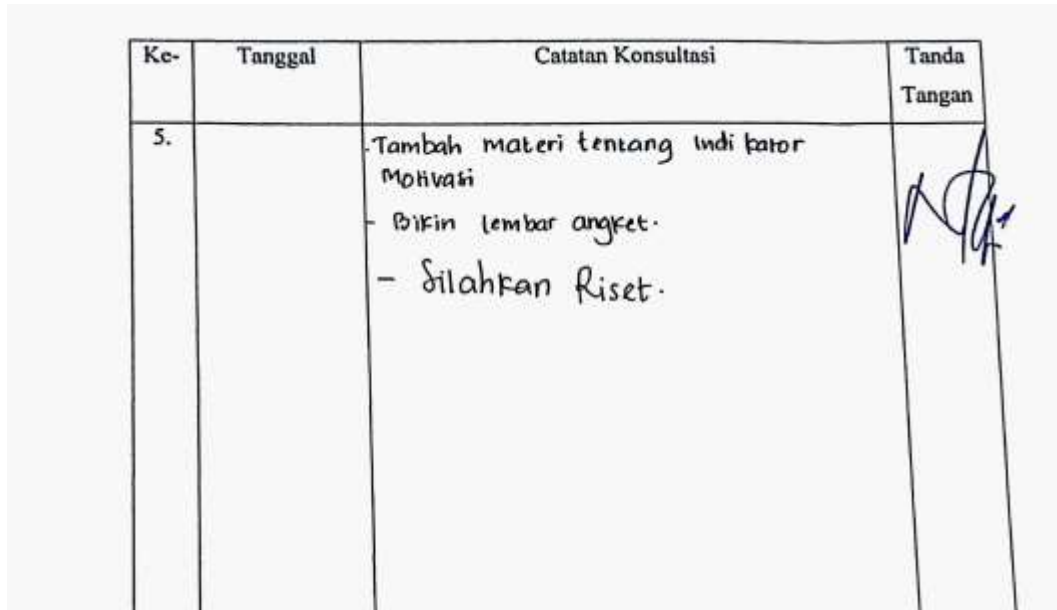 Ke- Tanggal Catatan Konsultasi Tanda
Tangan
5. Tambah materi tentang Indikator
Motivasi
- Bikin lembar angket.
- Silahkan Riset.